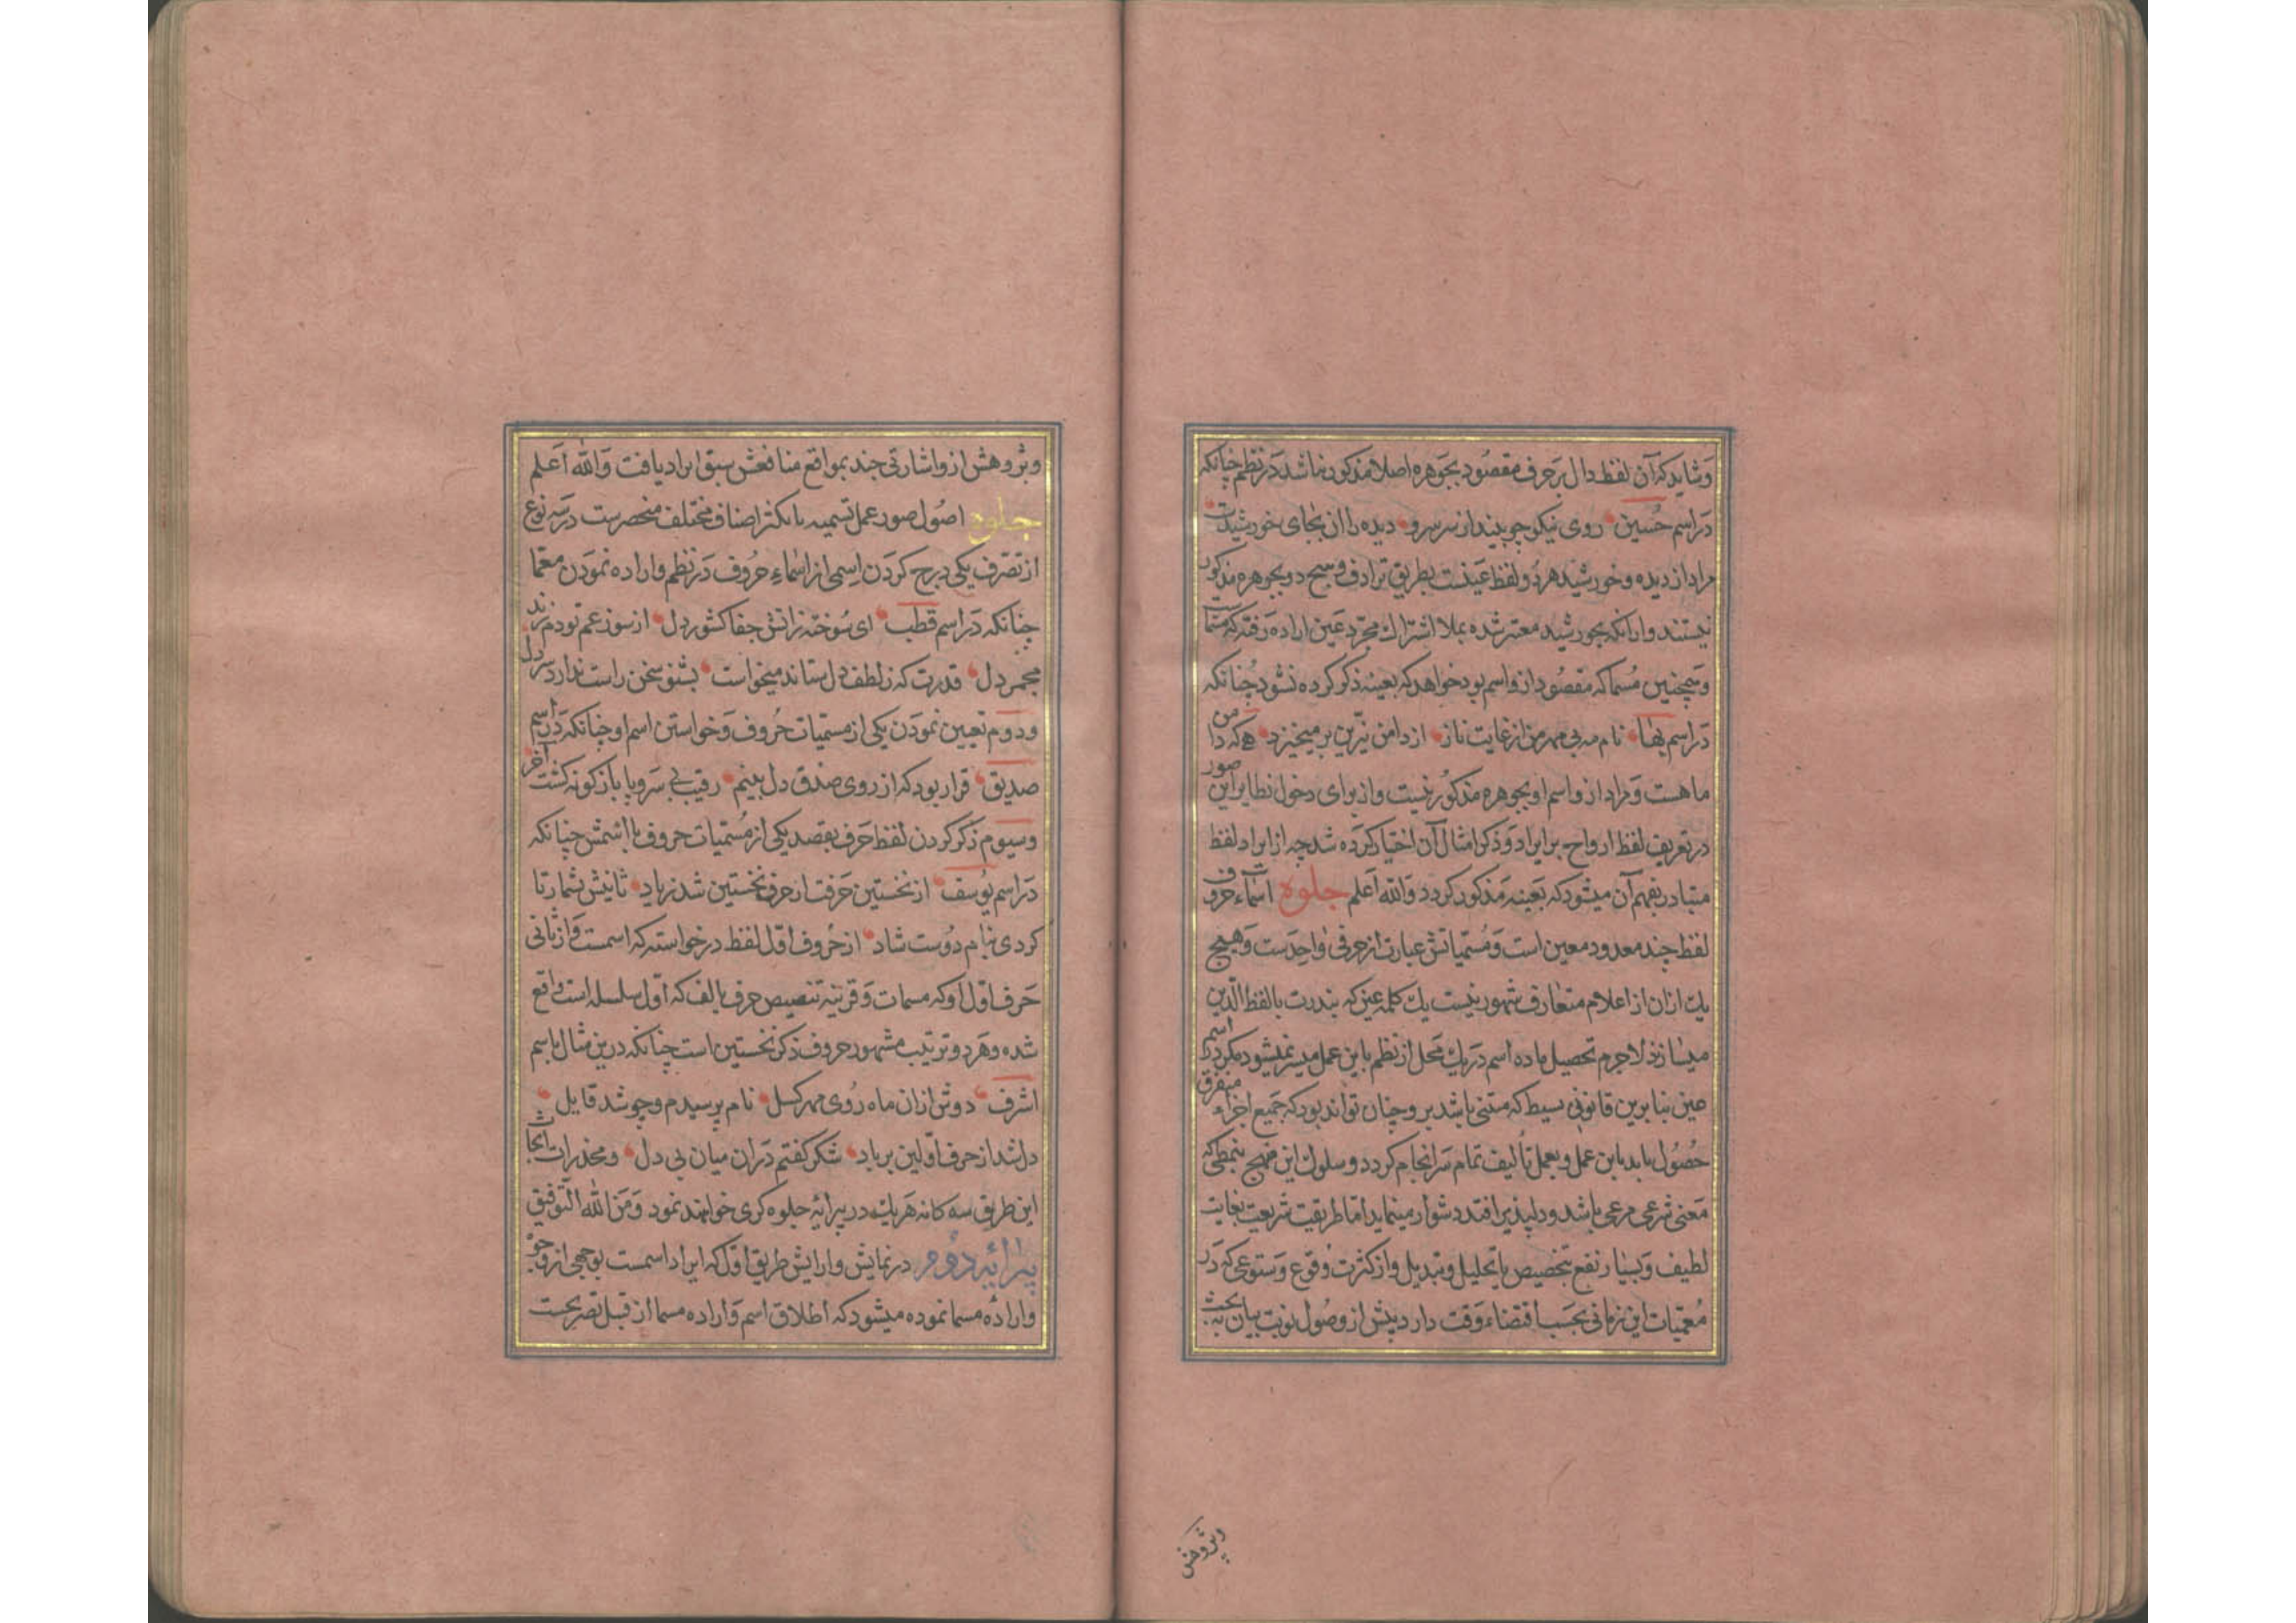 وشاید که آن لفظ دال بر حرف مقصود بجوهره اصلا مذکور نباشد در نظم چنانکه
در اسم حسین روی نیکو چو بیند از سر سر و دیده را آن بجای خورشیدست
مراد از دیده و خورشید هر دو لفظ عینست بطریق ترادف و هیچ دو بجوهره مذکور
نیستند و از آنکه بخورشید معتبر شده بملا اشتراک مجرد عین اراده رفته که مسماست
و همچنین مسما که مقصود از و اسم بود خواهد که بعینه ذکر کرده نشود چنانکه
در اسم بها نام مه بی مهر من از غایت ناز از دامن نیرین بر میخیزد که دامن
ماهست و مراد از و اسم او بجوهره مذکور نیست و از برای دخول نظایر این صور
در تعریف لفظ ارواح بر ایراد و ذکر امثال آن اختیار کرده شد چه از ایراد لفظ
متبادر بفهم آن میشود که بعینه مذکور کردد والله اعلم جلوه اسماء حروف
لفظ چند معدود معین است و مسمیاتش عبارت از حرفی واحدست و هیچ
یک از ان از اعلام متعارف مشهور نیست یک کلمه عین که بندرت با لفظ الدین
میسازند لاجرم تحصیل ماده اسم در یک محل از نظم باین عمل میسر نمیشود مکر در اسم
عین بنا برین قانونی بسیط که مبتنی باشد برو چنان تواند بود که جمیع اجزاء متفرق
حصول یابد باین عمل و بعمل تألیف تمام سرانجام کردد و سلوک این منهج بنمطی که
معنی شعری مرعی باشد و دلپذیر افتد دشوار مینماید اما طریقیت شریعت بغایت
لطیف و بسیار نفع بتخصیص با تحلیل و تبدیل و از کثرت وقوع و ستوعی که در
معمیات این زمانی بحسب اقتضاء وقت دارد پیش از وصول نوبت بیان به بحث
وپژوهش
وپژوهش از و اشارتی چند بمواقع منافعش سبق ایراد یافت والله اعلم
جلوه اصول صور عمل تسمیه با تکثر اصناف مختلف منحصرست در سه نوع
از تصرف یکی درج کردن اسمی از اسماء حروف در نظم و اراده نمودن معما
چنانکه در اسم قطب ای سوخته ز آتش جفا کشور دل از سوز غم تو دم زند
مجمر دل قدرت که ز لطف دل ستاند میخواست بشنو سخن راست ندارد سر دل
ودوم تعیین نمودن یکی از مسمیات حروف و خواستن اسم او چنانکه در اسم
صدیق قرار بود که از روی صدق دل بینم رقیب بی سر و پا باز کونه کشت آخر
وسیوم ذکر کردن لفظ حرف بقصد یکی از مسمیات حروف یا اسمش چنانکه
در اسم یوسف از نخستین حرفت ار حرف نخستین شد زیاد ثانیش بشمار تا
کردی بنام دوست شاد از حروف اول لفظ در خواسته که اسمست و از ثانی
حرف اول او که مسمات و قرینه تنصیص حرف بالف که اول سلسله است واقع
شده و هر دو ترتیب مشهور حروف ذکر نخستین است چنانکه درین مثال باسم
اشرف دوش از ان ماه روی مهر کسل نام پرسیدم و چو شد قایل
دلشد از حرف اولین بر باد شکر کفتم در ان میان بی دل و مخدرات ابحاث
این طریق سه کانه هر یک در پیرایه جلوه کری خواهند نمود ومن الله التوفیق
پیرایه دوم در نمایش و ارایش طریق اول که ایراد اسمست بوجهی از وجوه
و اراده مسما نموده میشود که اطلاق اسم و اراده مسما از قبل تصریحست